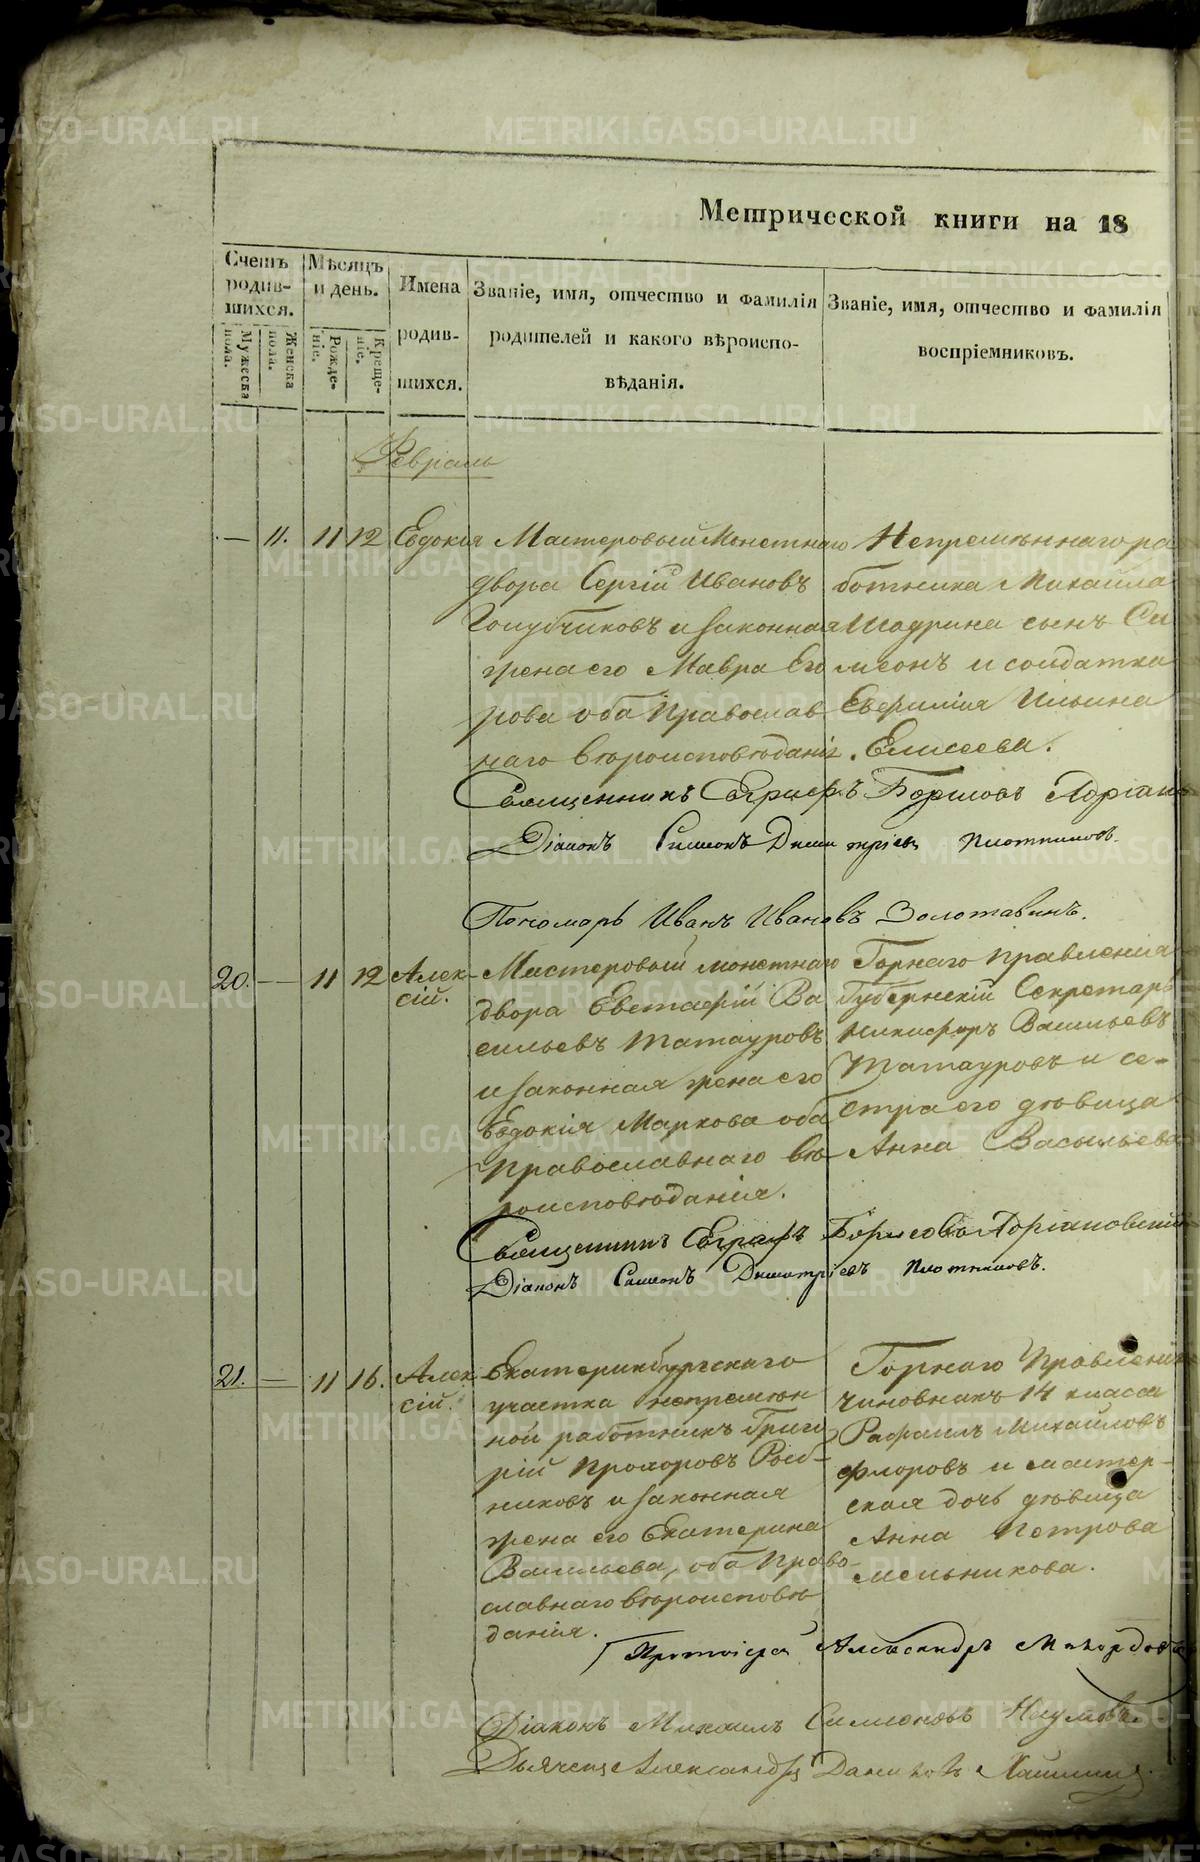 Метрической книги на 18
Счетъ родив-шихся.
Мужеска пола.
Женска пола.
Мѣсяцъ и день.
Рожде-ніе.
Креще-ніе.
Имена родив-шихся.
Званіе, имя, отчество и фамилія
родителей и какого вѣроиспо-
вѣданія.
Званіе, имя, отчество и фамилія
воспріемниковъ.
Февраль
— 11. 11 12 Евдокія
Мастеровый Монетнаго
двора Сергій Ивановъ
Голубчиковъ и законная
жена его Мавра Его
рова оба Православ
наго вѣроисповѣданія.
Непремѣннаго ра
ботника Михайла
Шадрина сынъ Си
меонъ и солдатка
Евфимія Ильина
Елисеева.
Священникъ Евграфъ Борисовъ Адріан
Діаконъ Симеонъ Димитріевъ Плотниковъ.
Пономарь Иванъ Ивановъ Золотавинъ.
20. — 11 12 Алек-
сій.
Мастеровый монетнаго
двора Евстафій Ва
сильевъ Татауровъ
и законная жена его
Евдокія Маркова оба
Православнаго вѣ
роисповѣданія.
Горнаго Правленія
Губернскій Секретарь
Никифоръ Васильевъ
Татауровъ и се-
стра его дѣвица
Анна Васильева
Священникъ Евграфъ Борисовъ Адріановскій
Діаконъ Симеонъ Димитріевъ Плотниковъ.
21. — 11 16. Алек
сій.
Екатеринбургскаго
участка непремѣн
ной работникъ Григо
рій Прохоровъ
никовъ и законная
жена его Екатерина
Васильева, оба Право-
славнаго вѣроисповѣ
данія.
Горнаго Правленія
чиновникъ 14 класса
Рафаилъ Михайловъ
Флоровъ и мастер-
ская дочь дѣвица
Анна Петрова
Мельникова.
Протоіерей Александръ
Діаконъ Михаилъ Симеоновъ Наумовъ.
Дьячекъ Александръ
METRIKI.GASO-URAL.RU